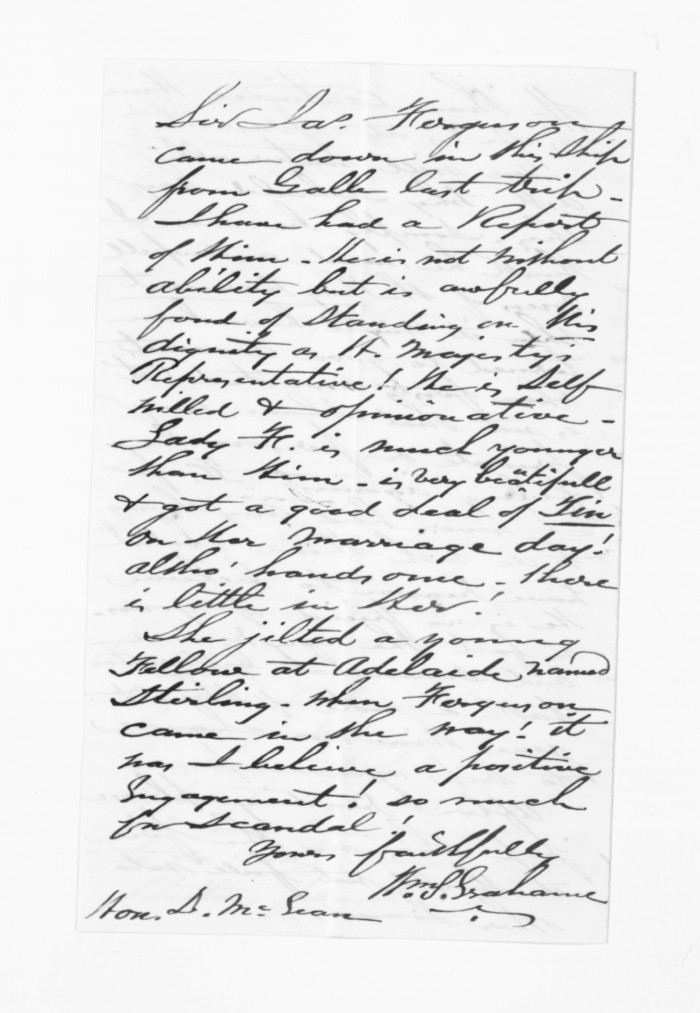 Sir Jas. Ferguson
came down in this ship
from Galle last trip -
I have had a Report
of Him - He is not without
ability but is awfully
fond of standing on His
dignity as H. Majesty's
Representative! He is self
willed & opinionative -
Lady F. is much younger
than Him - is very beätifull
& got a good deal of Tin
on Her marriage day!
altho' handsome - there
is little in Her!
She jilted a young
Fellow at Adelaide named
Stirling - when Ferguson
came in the way! it
was I believe a positive
Engagement! so much
for scandal!
Yours faithfully
Wm. S. Grahame
Hon. D. McLean